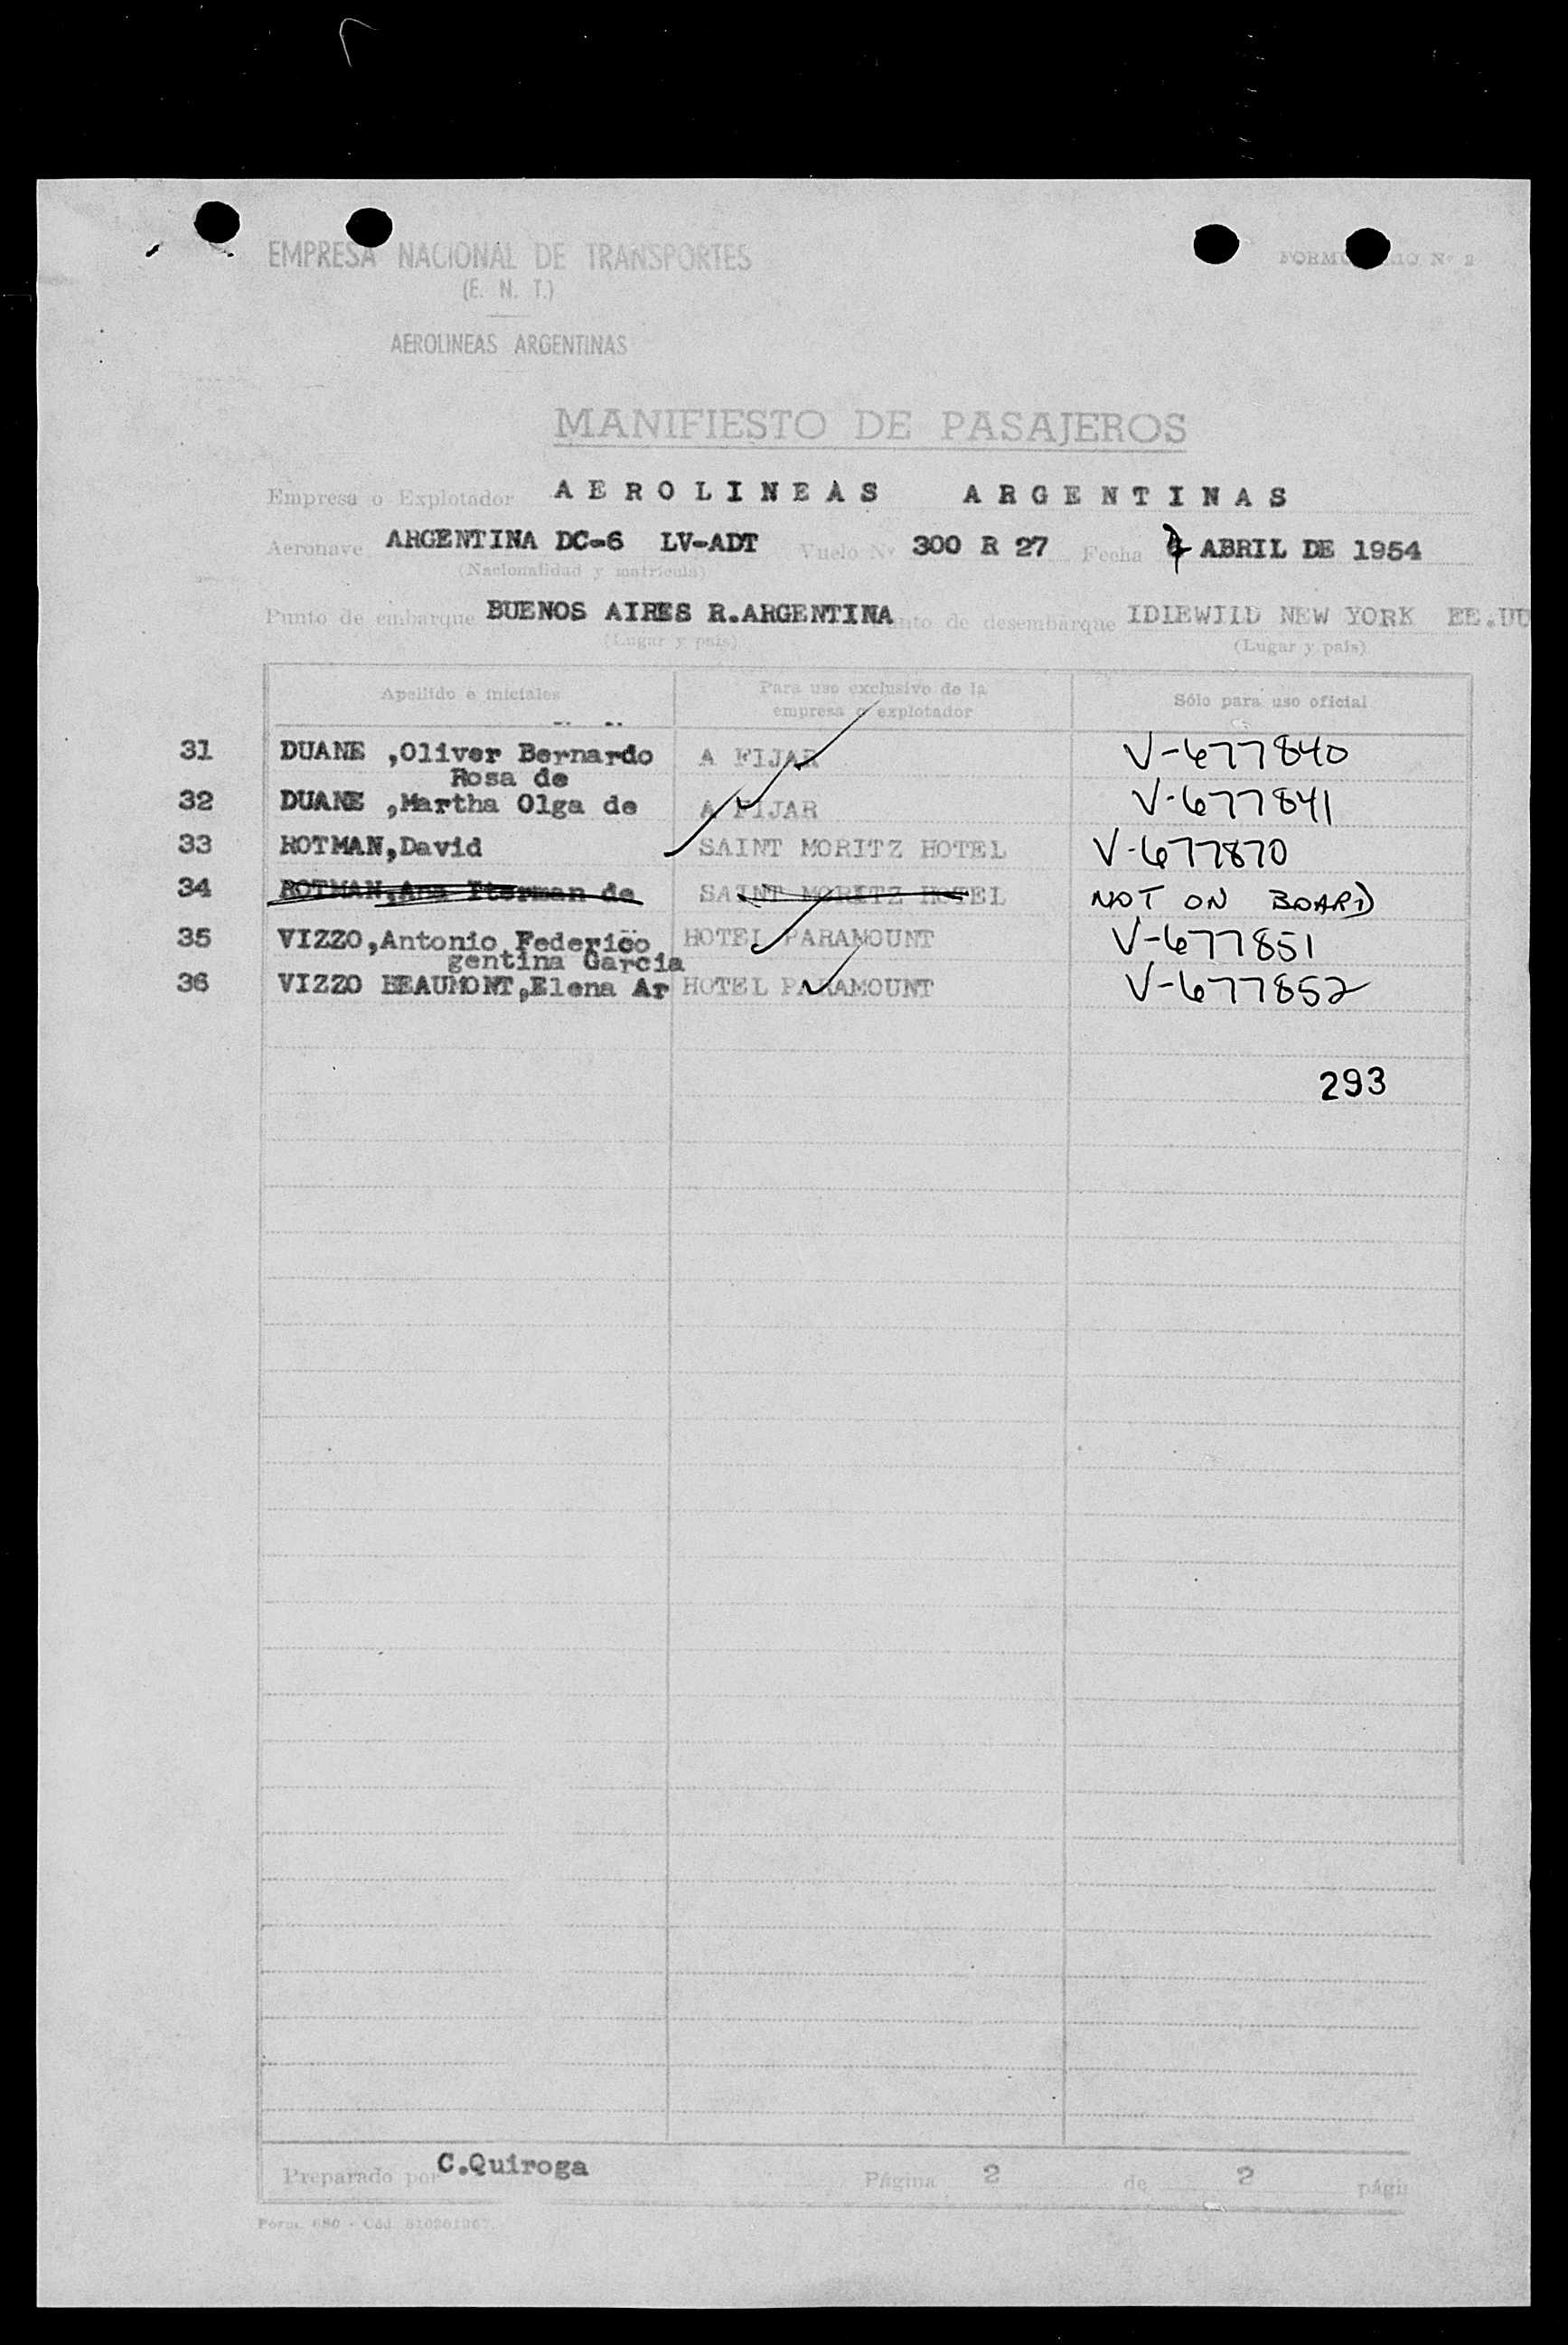 EMPRESA NACIONAL DE TRANSPORTES
FORMULARIO Nº 2
(E. N. T.)
AEROLINEAS ARGENTINAS
MANIFIESTO DE PASAJEROS
Empresa o Explotador AEROLINEAS ARGENTINAS
Aeronave ARGENTINA DC-6 LV-ADT Vuelo Nº 300 R 27 Fecha ABRIL DE 1954
(Nacionalidad y matrícula)
Punto de embarque BUENOS AIRES R.ARGENTINA Punto de desembarque IDLEWILD NEW YORK EE.UU
(Lugar y país) (Lugar y país)
Apellido e iniciales Para uso exclusivo de la empresa o explotador Sólo para uso oficial
31 DUANE ,Oliver Bernardo A FIJAR V-677840
Rosa de
32 DUANE ,Martha Olga de A FIJAR V-677841
33 ROTMAN,David SAINT MORITZ HOTEL V-677870
34 ROTMAN,Ana Iterman de SAINT MORITZ HOTEL NOT ON BOARD
35 VIZZO,Antonio Federico HOTEL PARAMOUNT V-677851
gentina Garcia
36 VIZZO BEAUMONT,Elena Ar HOTEL PARAMOUNT V-677852
293
Preparado por C.Quiroga Página 2 de 2 pági
Form. 680 - Cód.